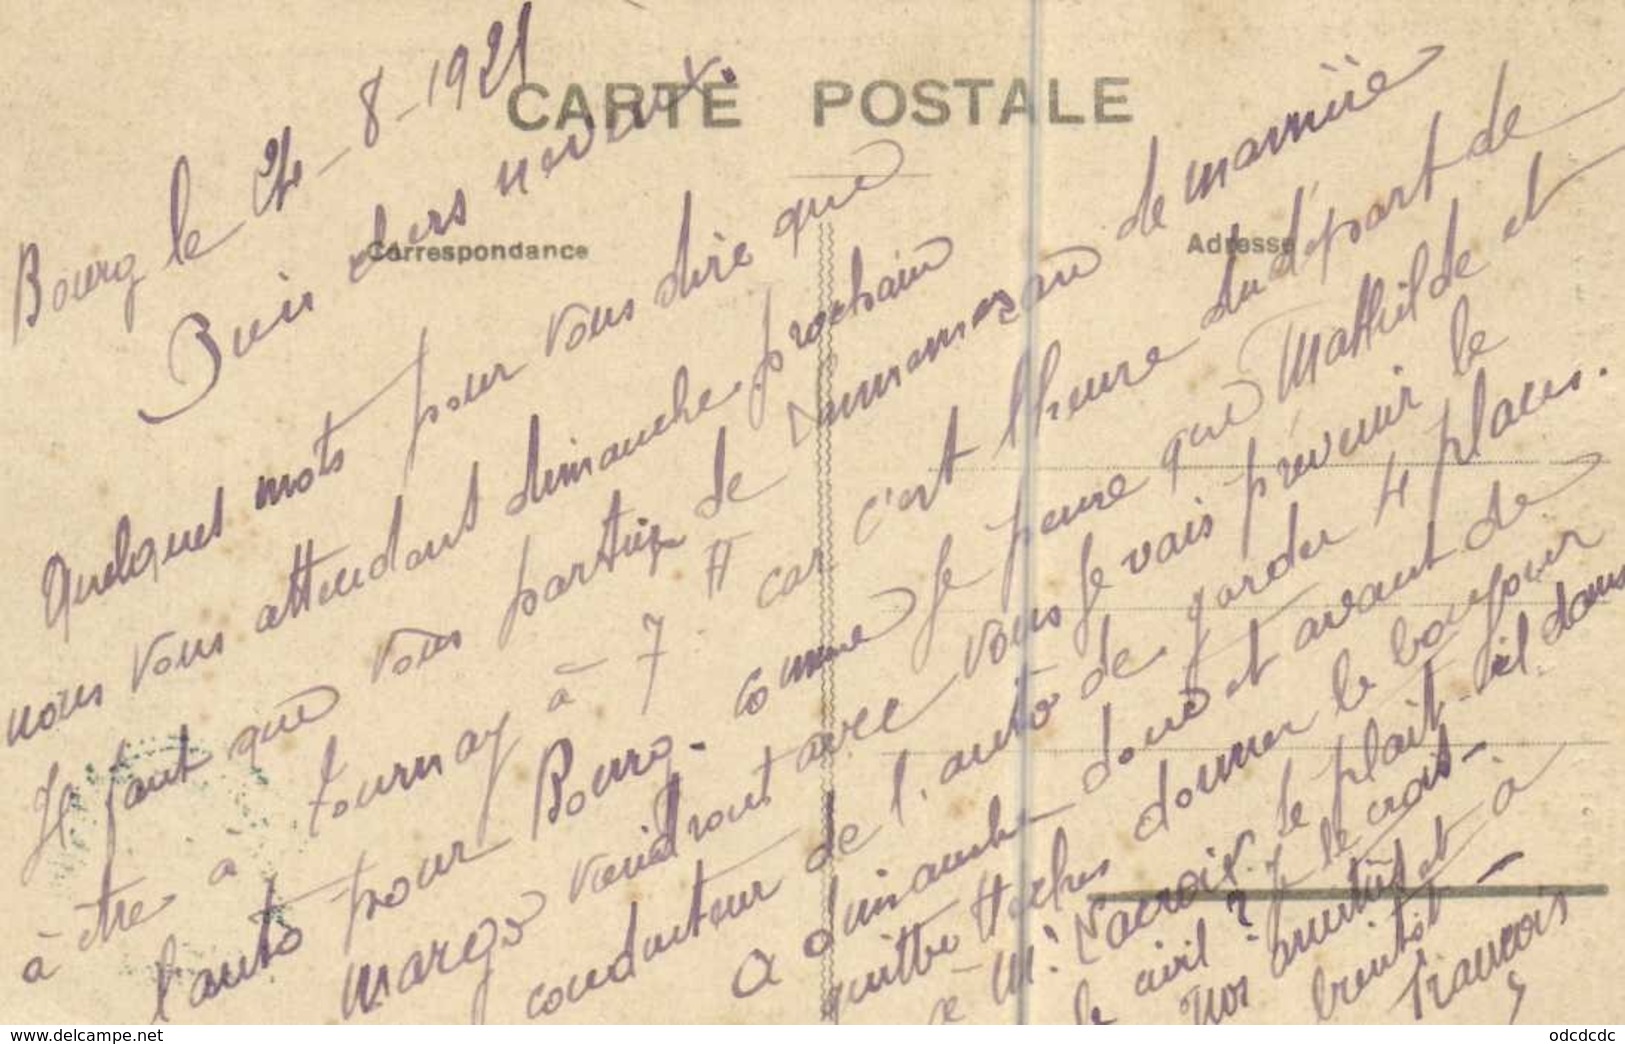 CARTE POSTALE
Correspondance
Adresse
Bourg le 24-8-1921
Bien chers neveux.
Quelques mots pour vous dire que
nous vous attendons dimanche prochain
Il faut que vous partiez de Lannemezan de manière
à être à Tournay à 7 H car c'est l'heure du départ de
l'auto pour Bourg. comme je pense que Mathilde et
Margo viendront avec vous je vais prévenir le
conducteur de l'auto de garder 4 places.
A dimanche donc et avant de
quitter donner le bonjour
à Mr Lacroix. Se plait-il dans
le civil? Je le crois-
Nos amitiés et à
bientôt-
François
www.delcampe.net
odcdcdc